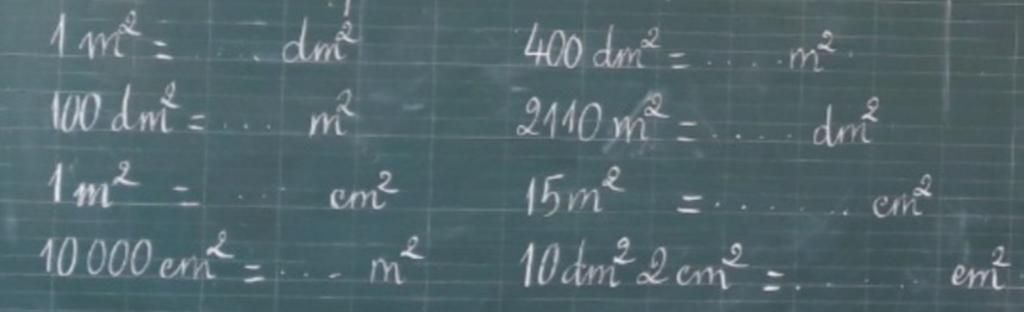 1 m² = ..... dm²
100 dm² = .... m²
1 m² = .... cm²
10 000 cm² = ..... m²
400 dm² = ...... m²
2110 m² = ...... dm²
15 m² = ....... cm²
10 dm² 2 cm² = ....... cm²